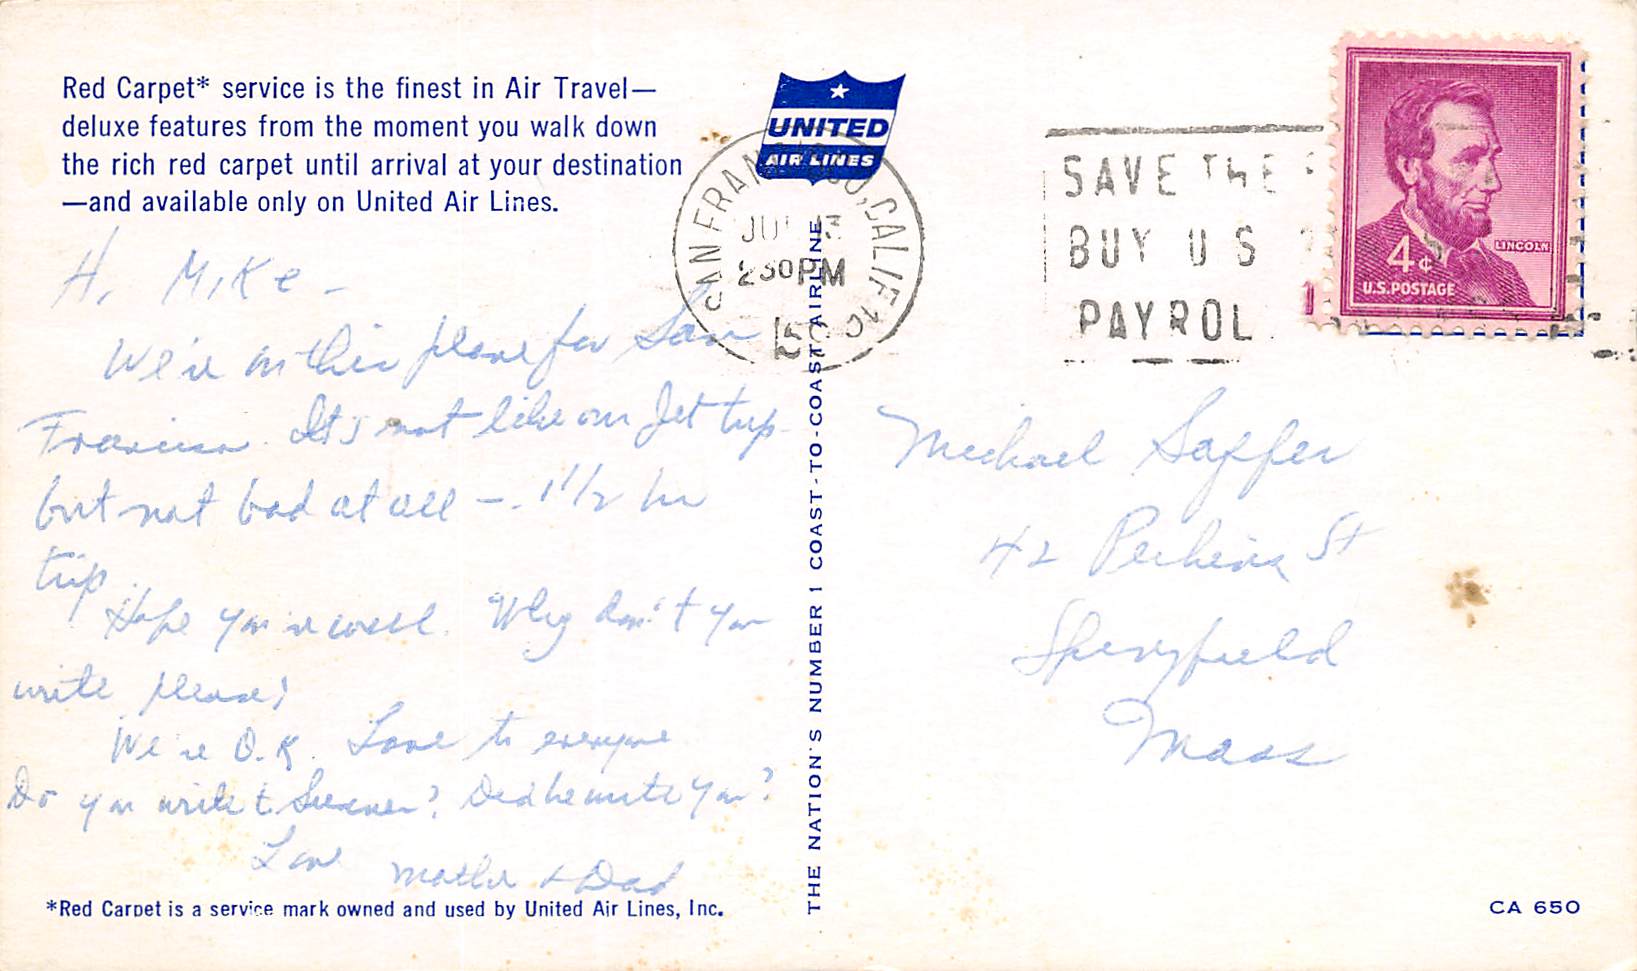 Red Carpet* service is the finest in Air Travel—
deluxe features from the moment you walk down
the rich red carpet until arrival at your destination
—and available only on United Air Lines.
UNITED
AIR LINES
SAN FRANCISCO, CALIF
230 PM
SAVE THE
BUY U S
PAYROL
LINCOLN
4¢
U.S. POSTAGE
Hi Mike –
We're on this plane for San
Francisco. It's not like our Jet trip
but not bad at all – 1 1/2 hr
trip.
Hope you're well. Why don't you
write please!
We're O.K. Love to everyone
Do you write to ? Did he write you?
Love
Mother & Dad
*Red Carpet is a service mark owned and used by United Air Lines, Inc.
THE NATION'S NUMBER 1 COAST-TO-COAST AIRLINE
Michael Saffer
42 Perkins St
Springfield
Mass
CA 650